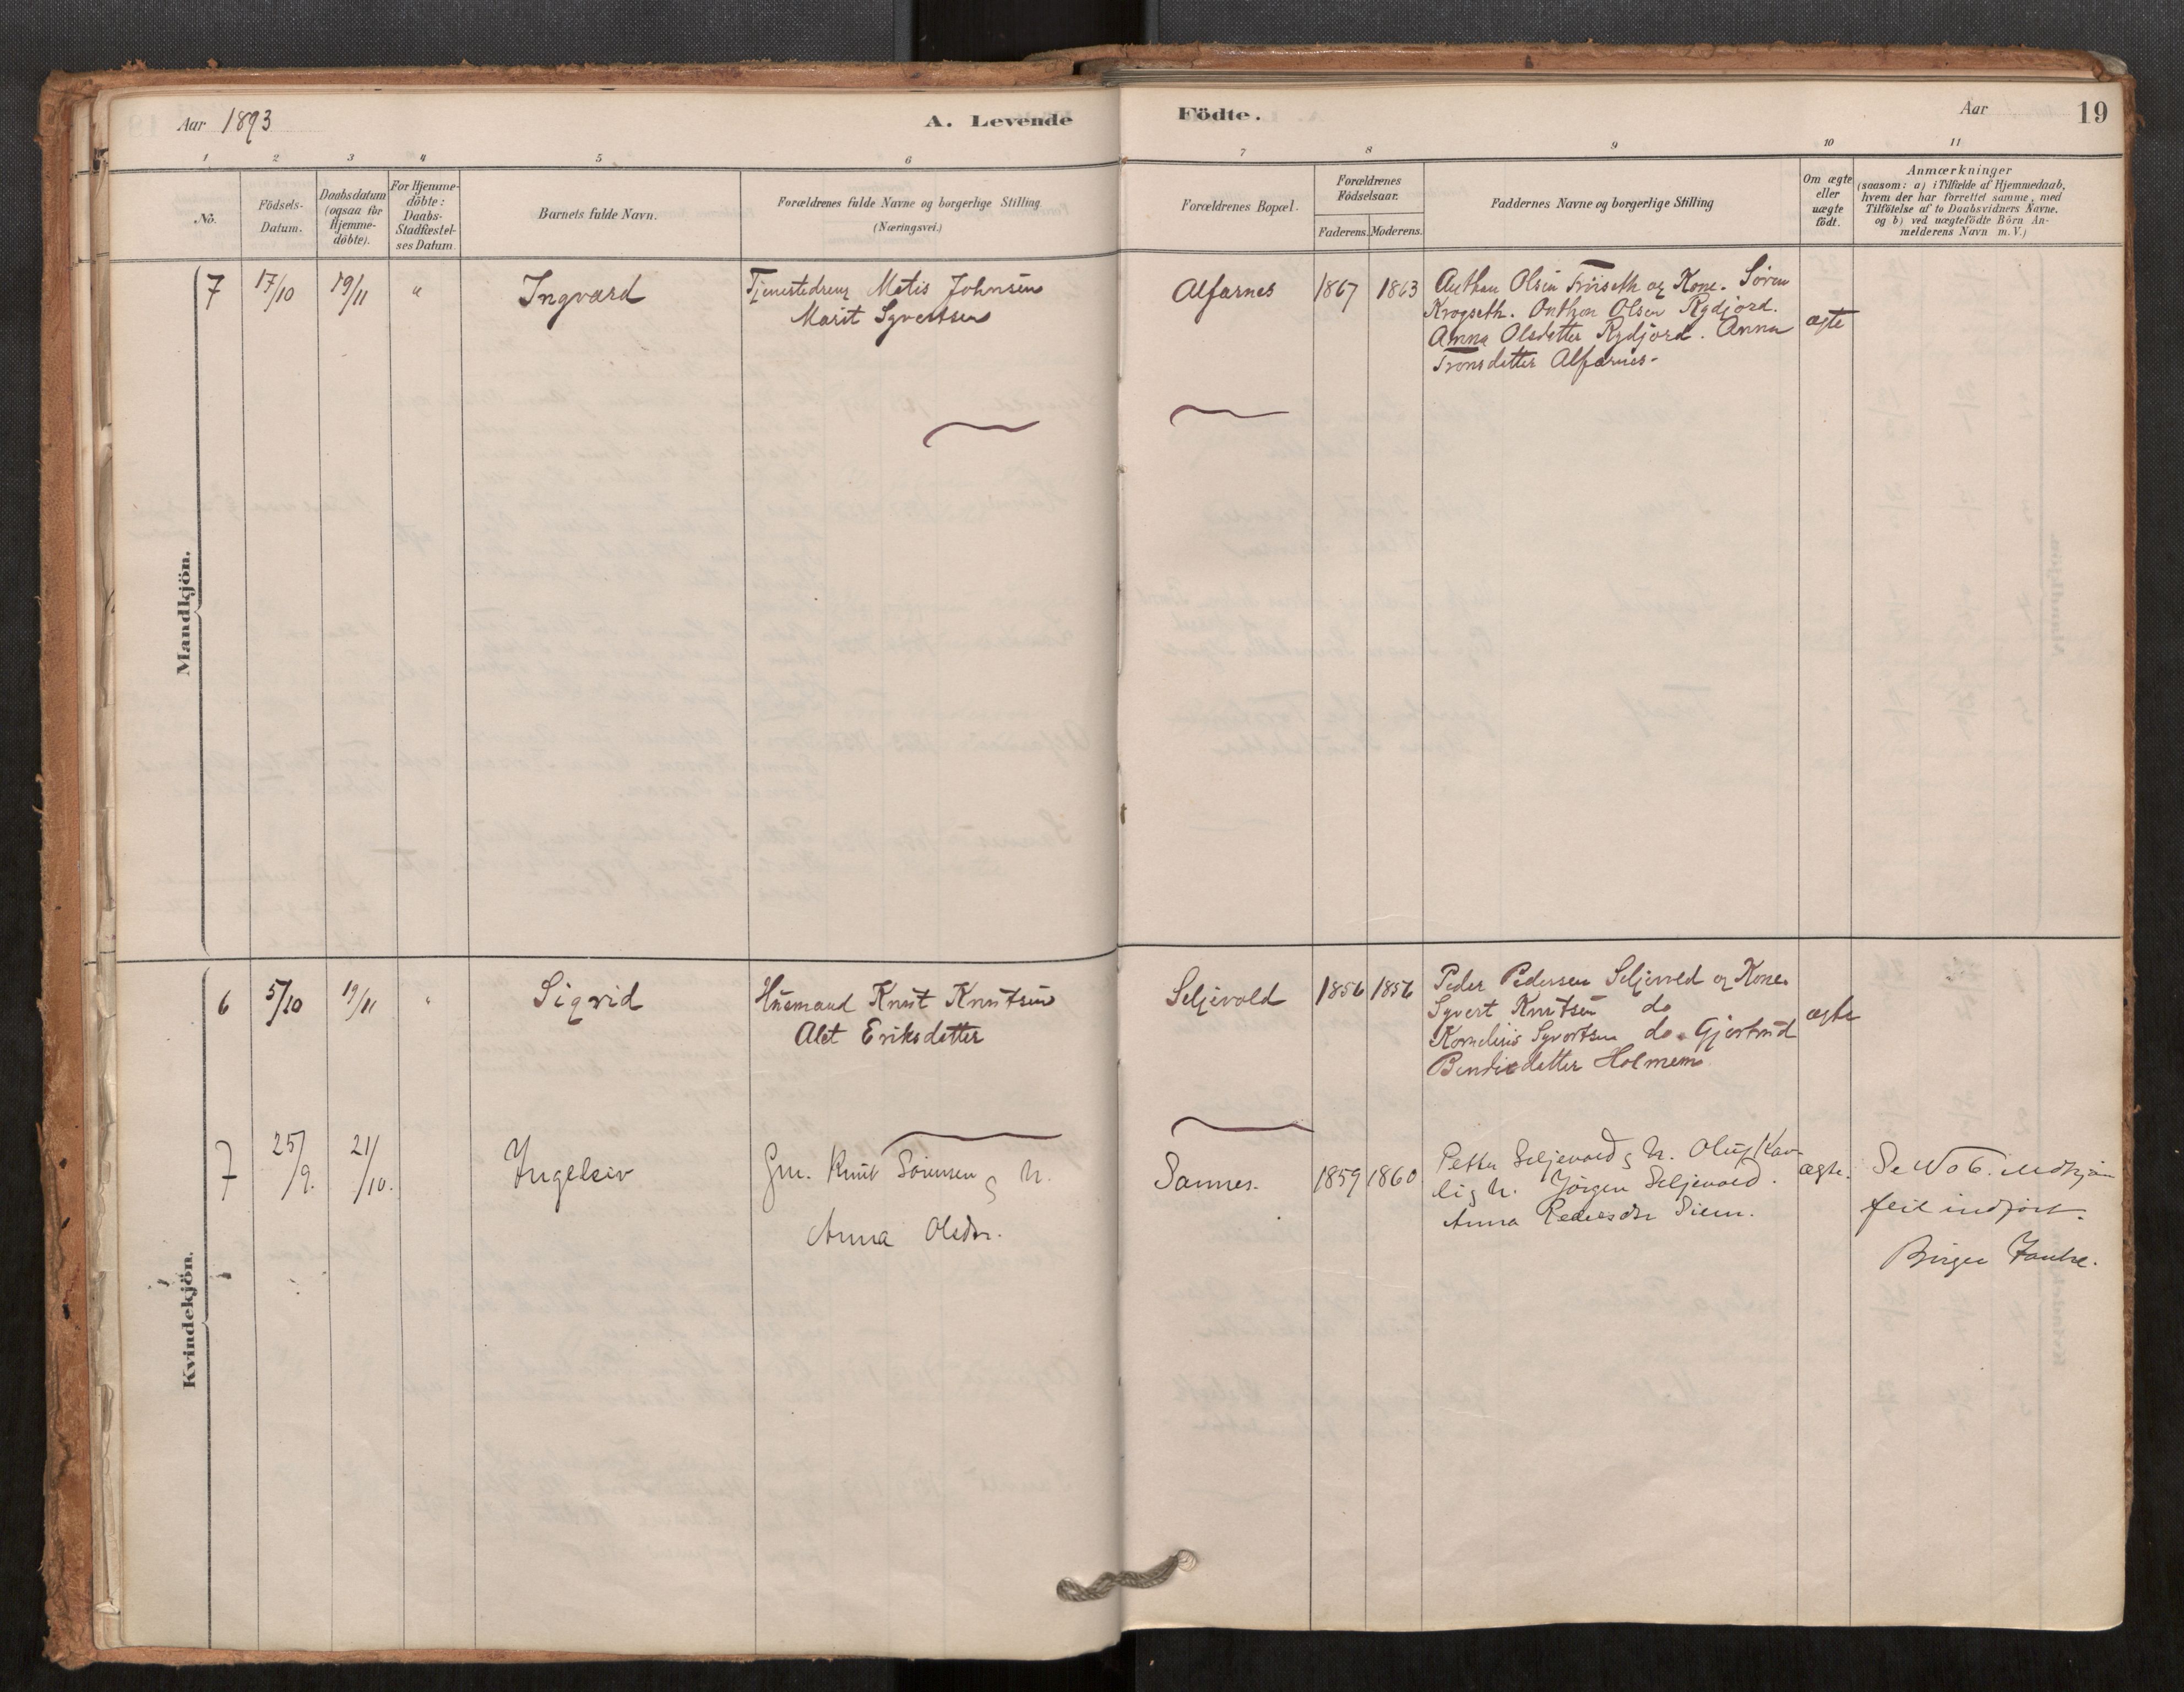 Aar 1893
A. Levende Födte.
Aar
19
1 2 3 4 5 6 7 8 9 10 11
No.
Födsels-
Datum.
Daabsdatum
(ogsaa for
Hjemme-
döbte).
For Hjemme-
döbte:
Daabs-
Stadfæstel-
ses Datum.
Barnets fulde Navn.
Forældrenes fulde Navne og borgerlige Stilling
(Næringsvei.)
Forældrenes Bopæl.
Forældrenes
Födselsaar.
Faderens. Moderens.
Faddernes Navne og borgerlige Stilling
Om ægte
eller
uægte
födt.
Anmærkninger
(saasom: a) i Tilfælde af Hjemmedaab,
hvem der har forrettet samme, med
Tilföielse af to Daabsvidners Navne.
og b) ved uægtefödte Börn An-
melderens Navn m.V.)
Mandkjön.
7 17/10 19/11 " Ingvard
Tjenestedreng Matis Johnsen
Marit Syvertsen
Alfarnes 1867 1863
Anthon Olsen og Kone. Søren
Krogseth. Anthon Olsen Rydjord.
Anna Olsdatter Rydjord. Anna
Tronsdatter Alfarnes.
ægte
Kvindekjön.
6 5/10 19/11 " Sigrid
Husmand Knut Knutsen
Alet Eriksdatter
Seljevold 1856 1856
Peder Pedersen Seljevold og Kone.
Syvert Knutsen do
Kornelius Syvertsen do. Gjertrud
Bendixdatter Holmem
ægte
7 25/9. 21/10. Ingeleiv
Gm. Knut Sörensen g h.
Anna Olsdtr.
Sannes. 1859 1860
Petter Seljevold g h. Oluf Kav-
li g h. Jörgen Seljevold.
Anna Pedersdtr Siem.
ægte.
Se No 6. Mdkjön
feil indfört.
Birger